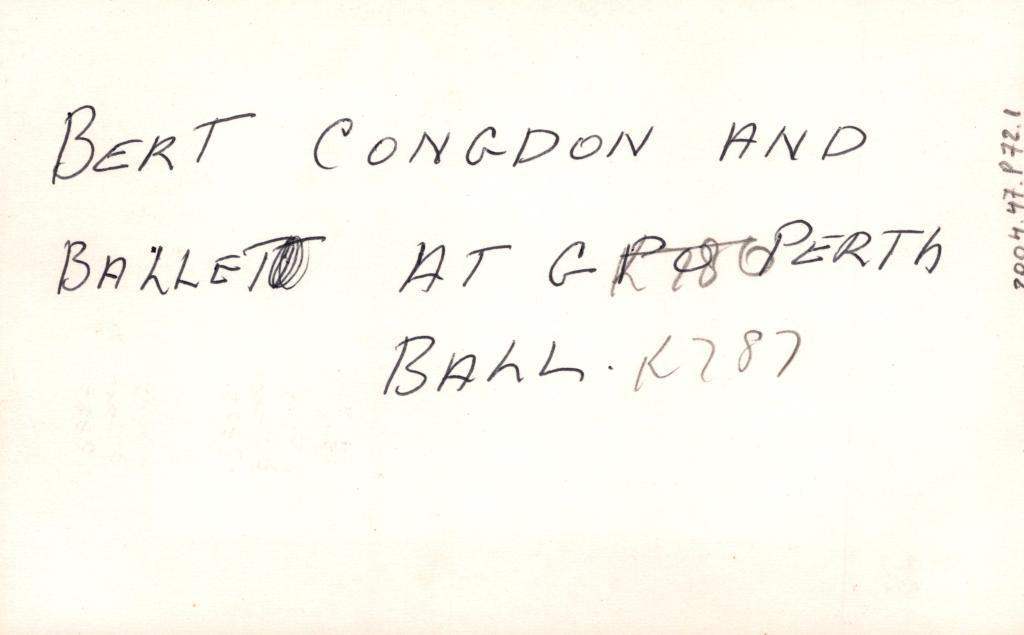 BERT CONGDON AND
BALLET AT GPO PERTH
BALL. K787
2004.47.P72.1